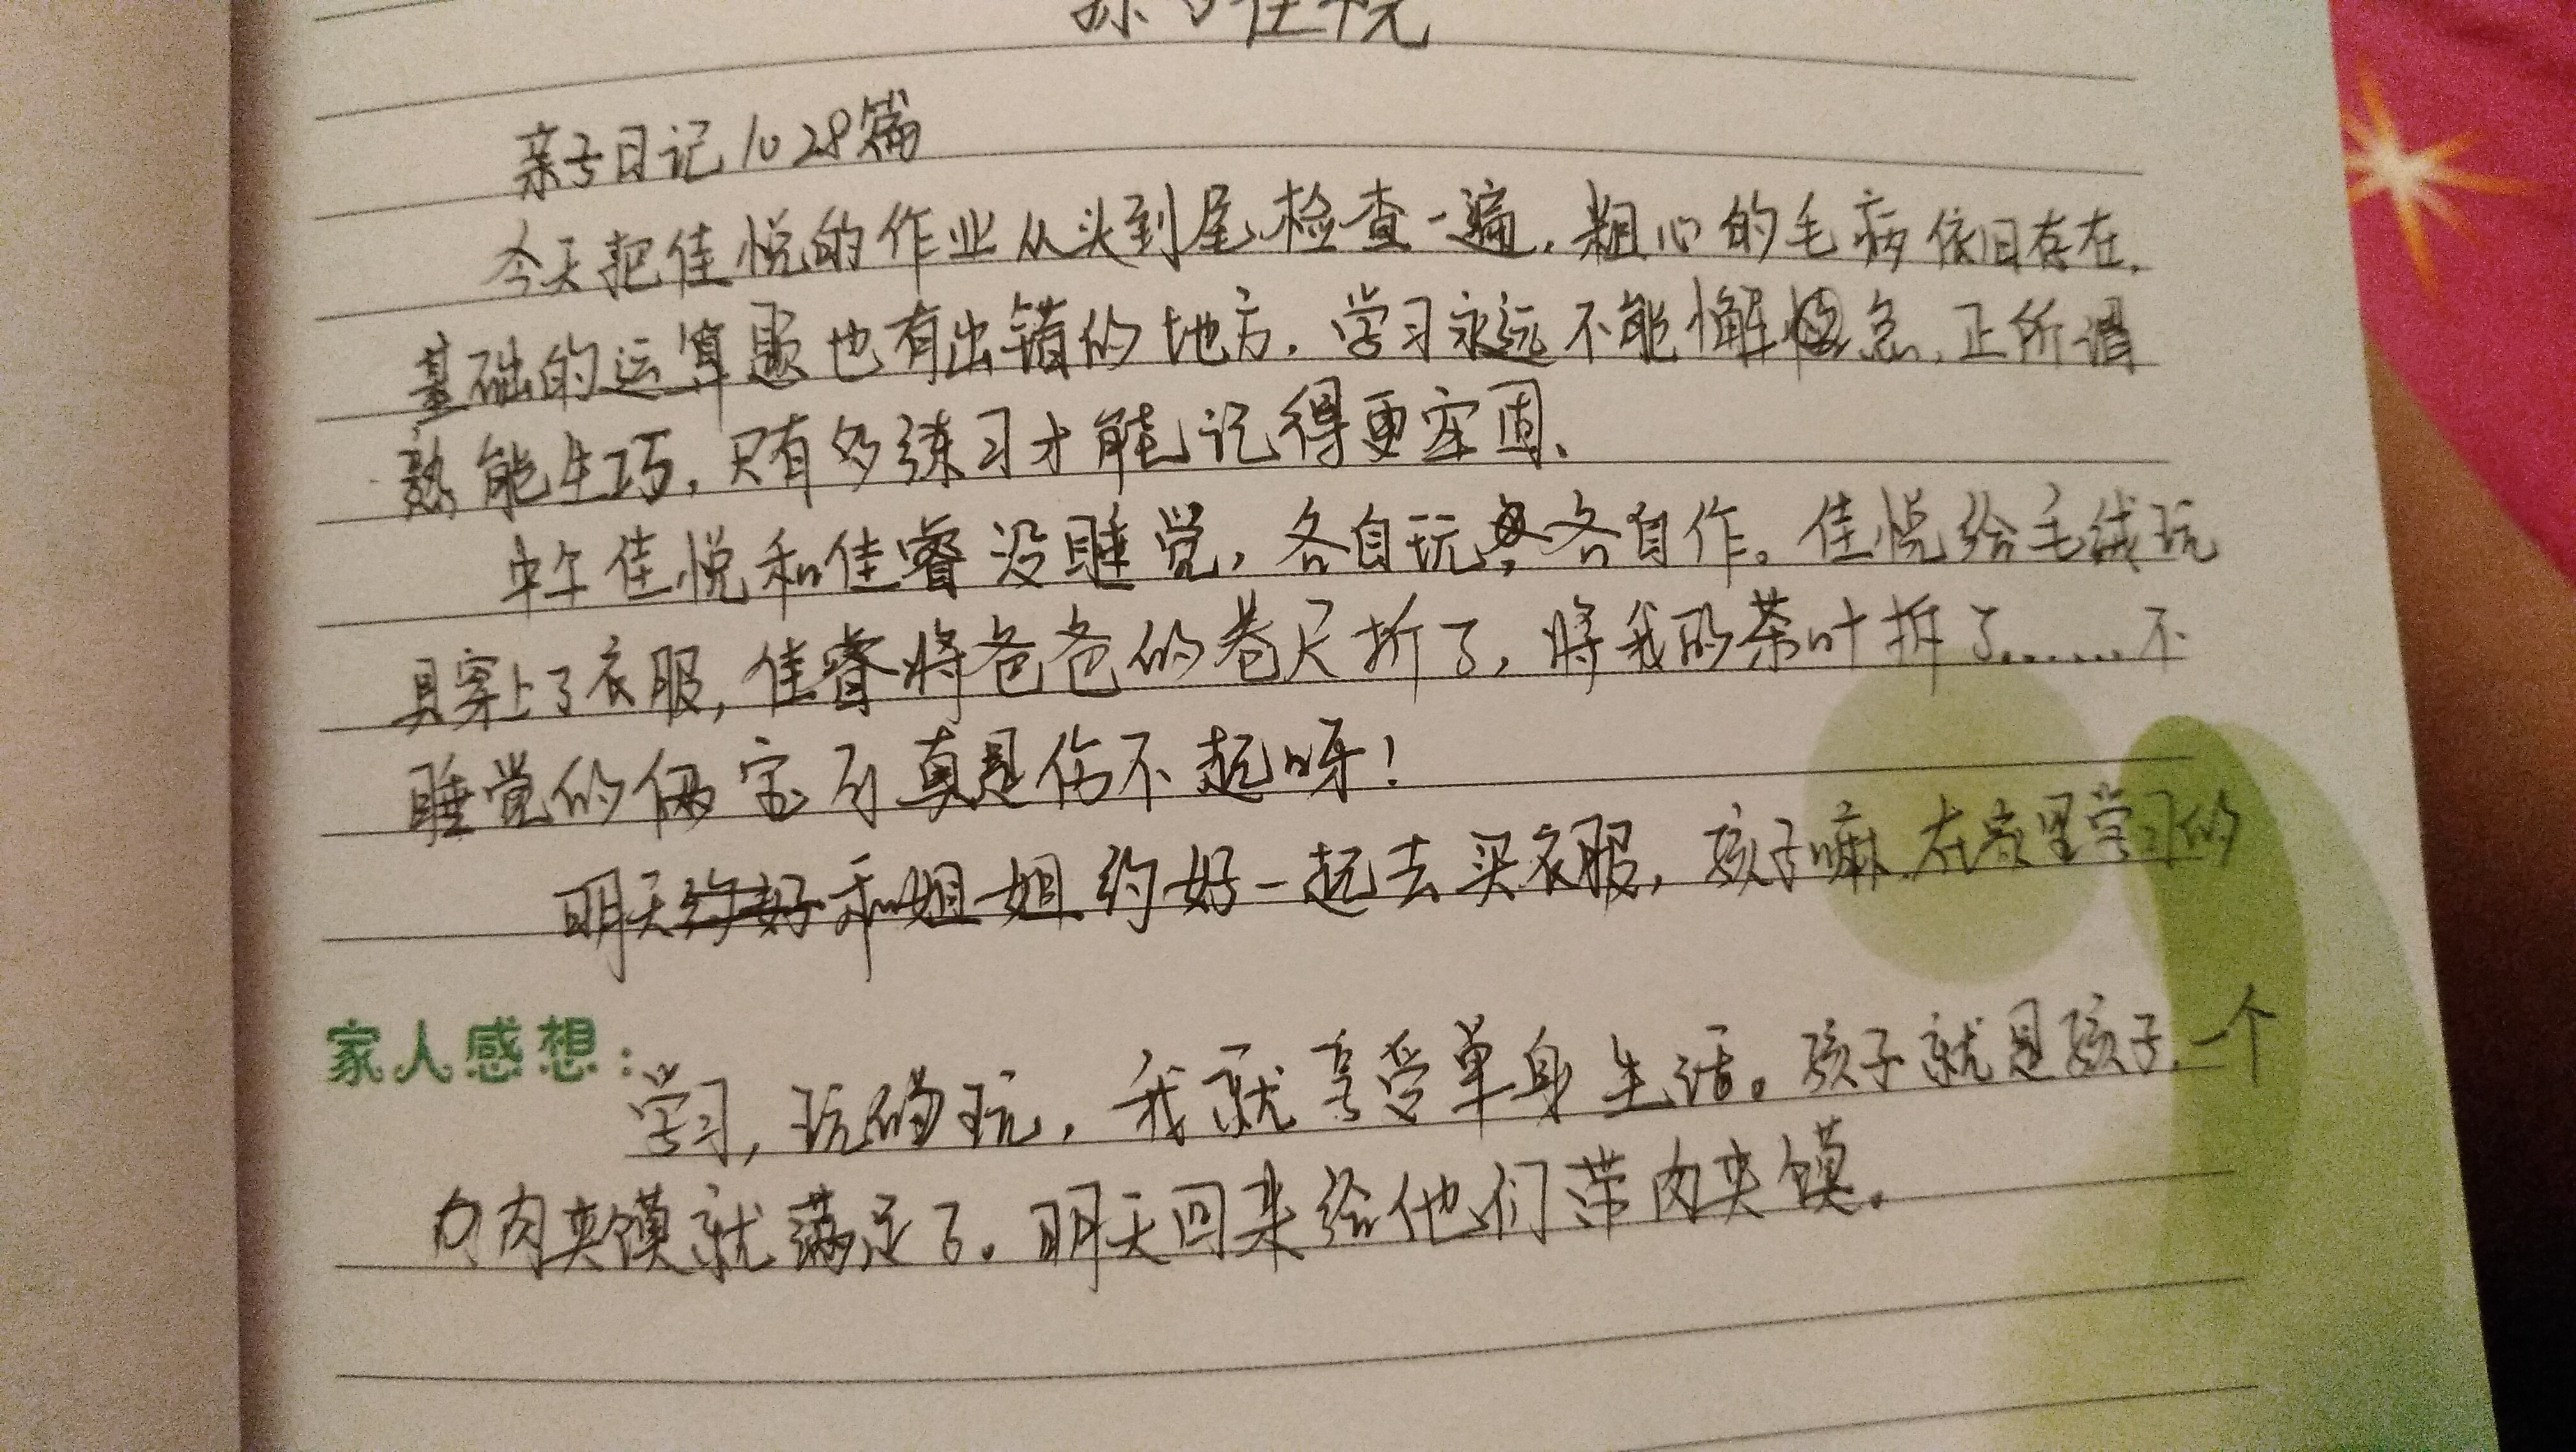 亲子日记1028篇
今天把佳悦的作业从头到尾检查一遍，粗心的毛病依旧存在，
基础的运算题也有出错的地方，学习永远不能懈怠，正所谓
熟能生巧，只有多练习才能记得更牢固、
中午佳悦和佳睿没睡觉，各自玩，各自作。佳悦给毛绒玩
具穿上了衣服，佳睿将爸爸的卷尺折了，将我的茶叶拆了……不
睡觉的俩宝可真是伤不起呀！
明天和姐姐约好一起去买衣服，孩子嘛，在家里学习的
家人感想：
学习，玩的玩，我就享受单身生活。孩子就是孩子，一个
肉夹馍就满足了。明天回来给他们带肉夹馍。